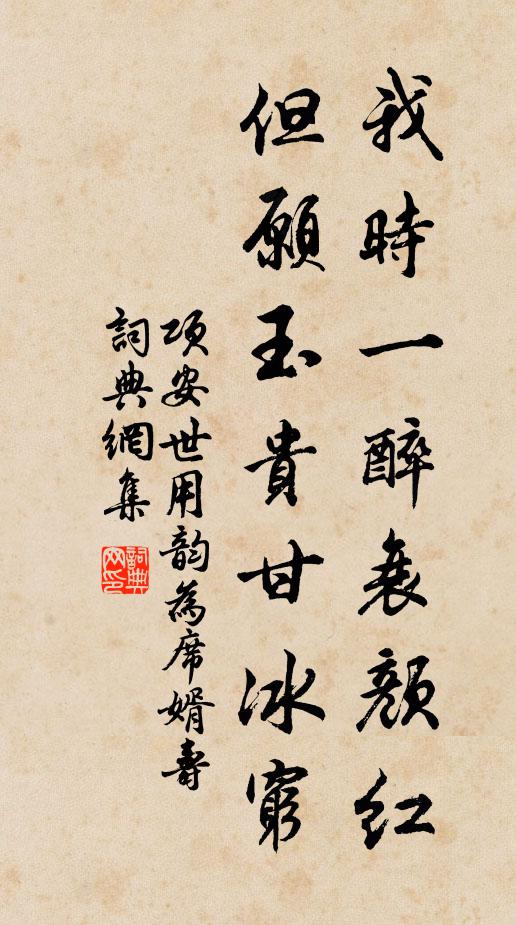 我時一醉衰顏紅
但願玉貴甘冰窮
項安世用韵為席婿壽
詞典網集
詞典網印